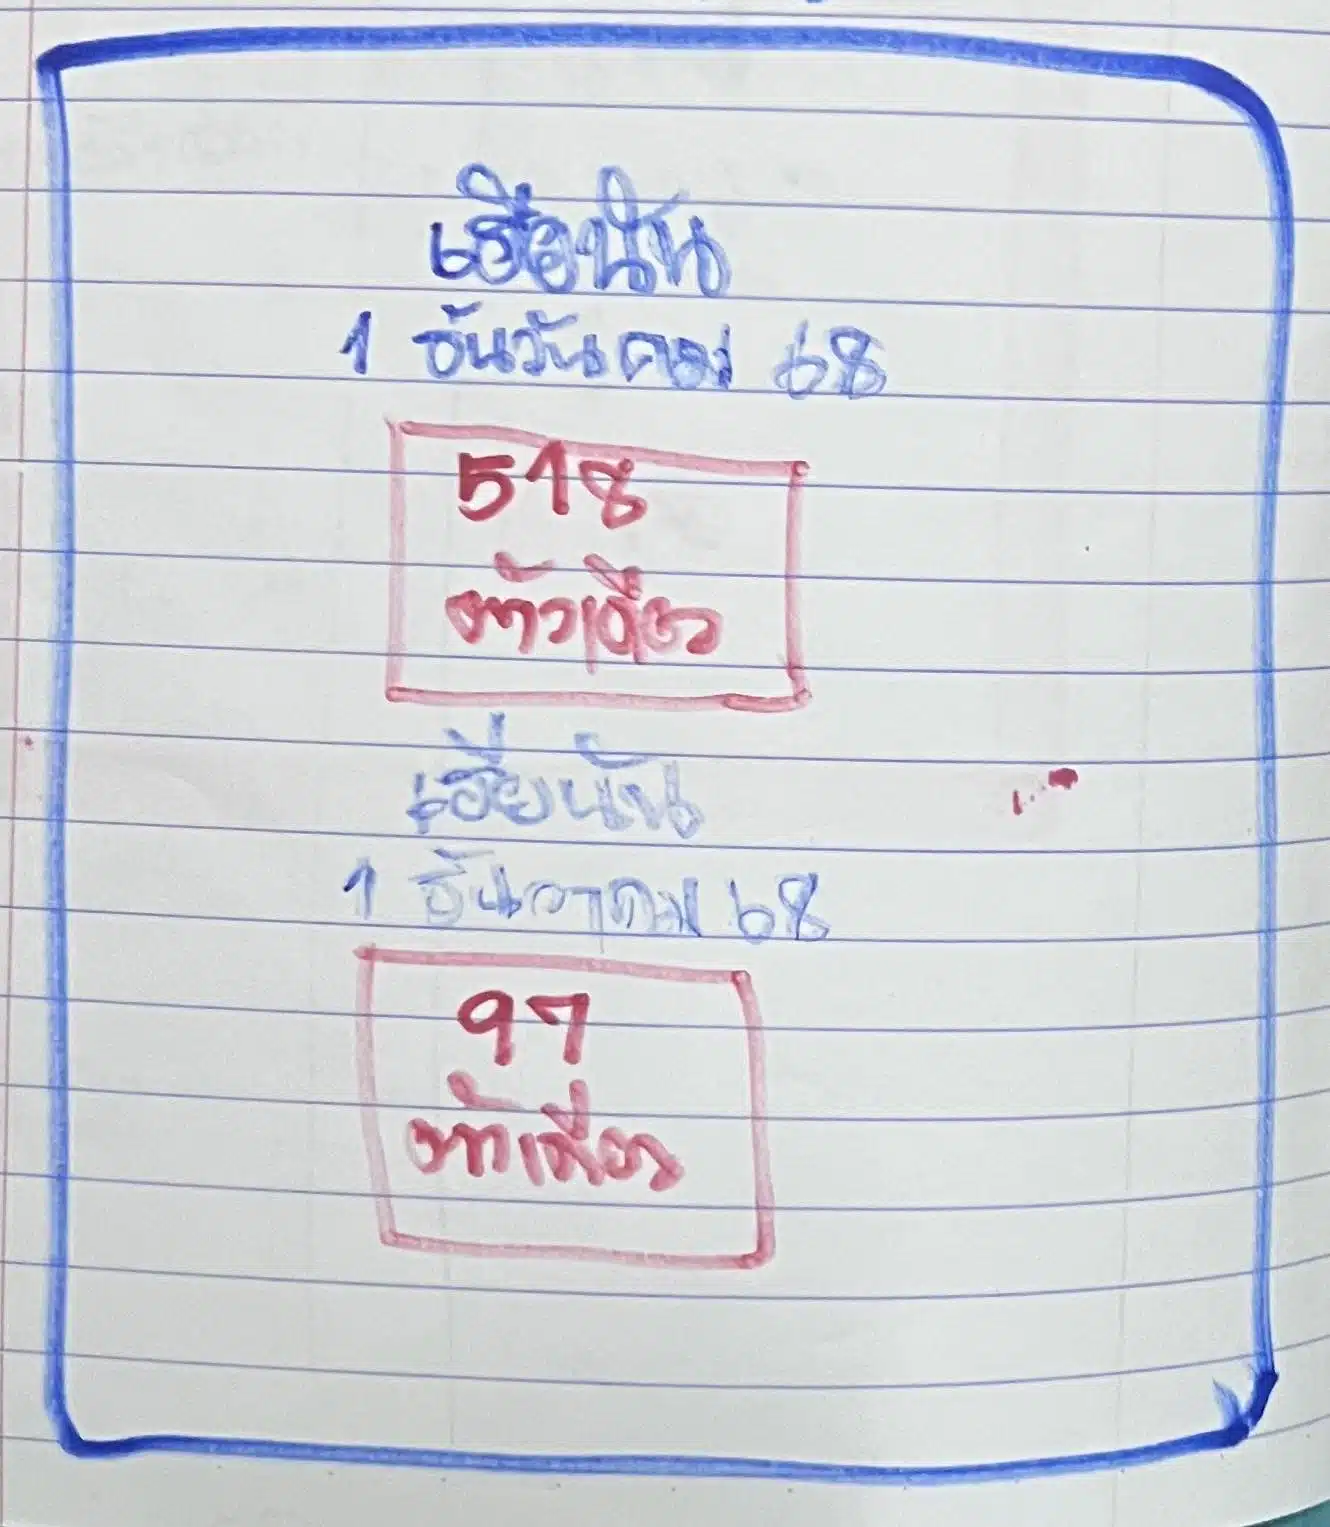 เฮียนัน
1 ธันวันคม 68
518
ตัวเดียว
เฮียนัน
1 ธันวาคม 68
97
ตัวเดียว